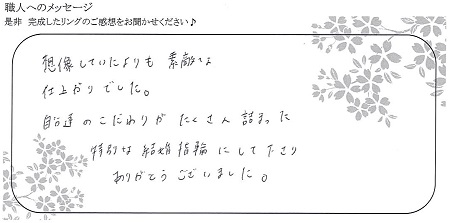 職人へのメッセージ
是非 完成したリングのご感想をお聞かせください♪
想像していたよりも 素敵な
仕上がりでした。
自分達のこだわりが たくさん 詰まった
特別な 結婚指輪 にして下さり
ありがとう ございました。